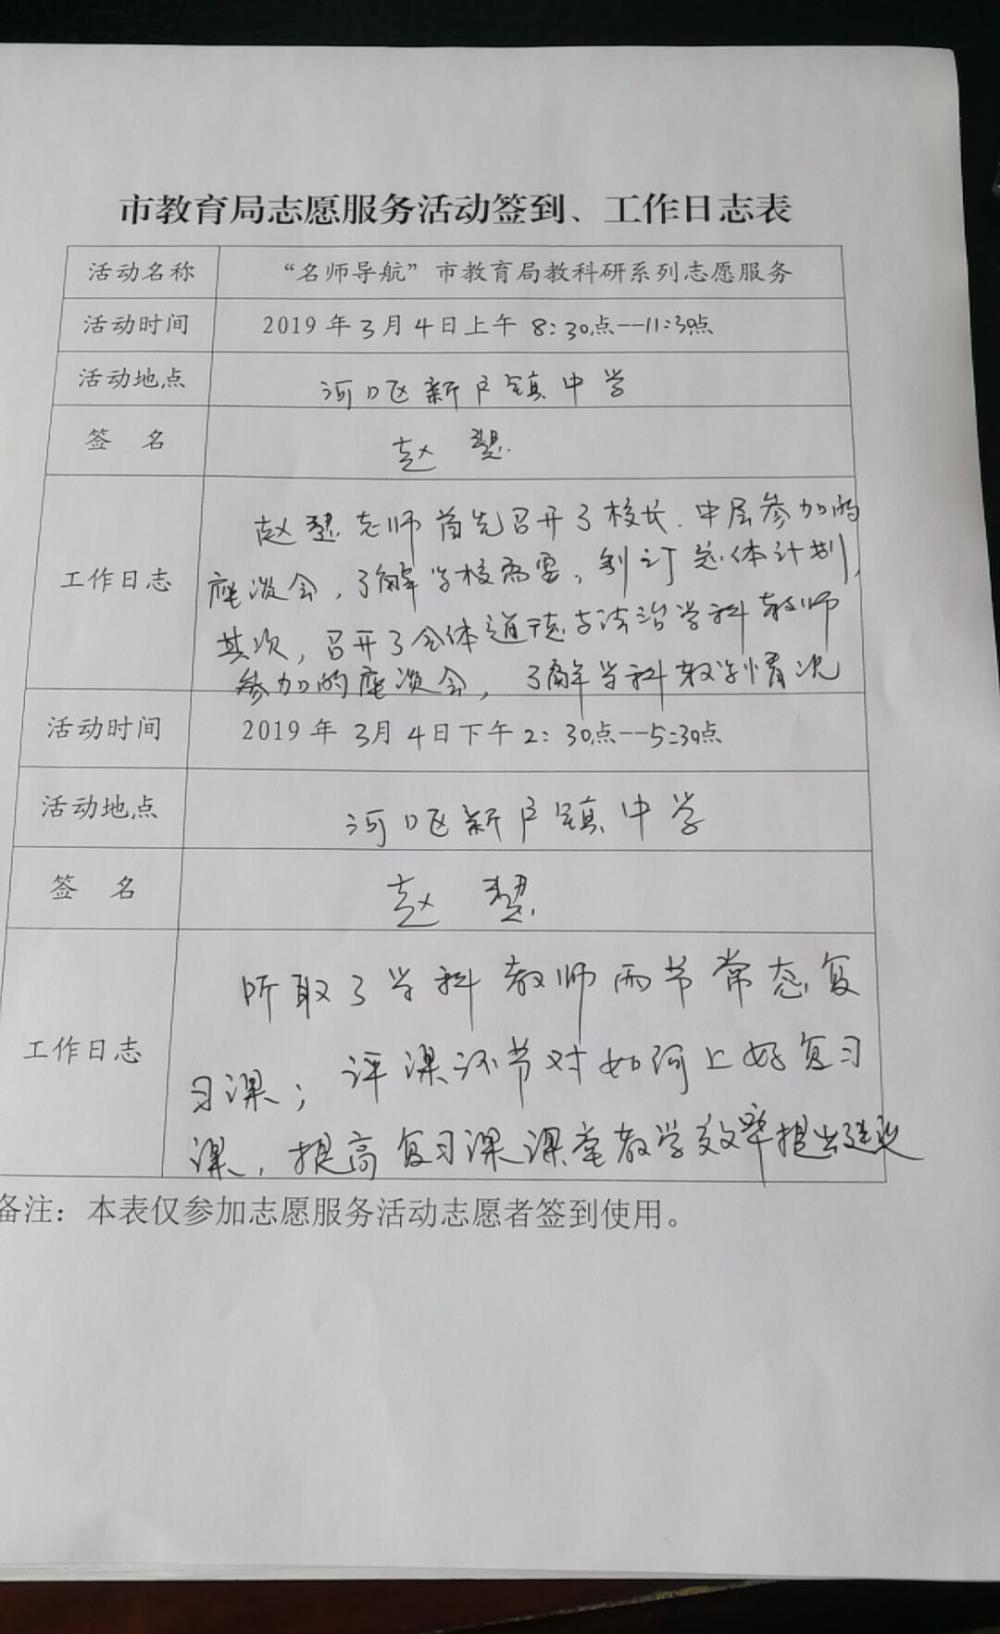 市教育局志愿服务活动签到、工作日志表
活动名称 “名师导航”市教育局教科研系列志愿服务
活动时间 2019年3月4日上午8:30点--11:30点
活动地点 河口区新户镇中学
签 名 赵
工作日志
赵 老师首先召开了校长、中层参加的
座谈会,了解学校需要,制订总体计划,
其次,召开了全体道德与法治学科教师
参加的座谈会,了解学科教学情况
活动时间 2019年3月4日下午2:30点--5:30点
活动地点 河口区新户镇中学
签 名 赵
工作日志
听取了学科教师两节常态复
习课;评课环节对如何上好复习
课,提高复习课课堂教学效率提出建议
备注:本表仅参加志愿服务活动志愿者签到使用。